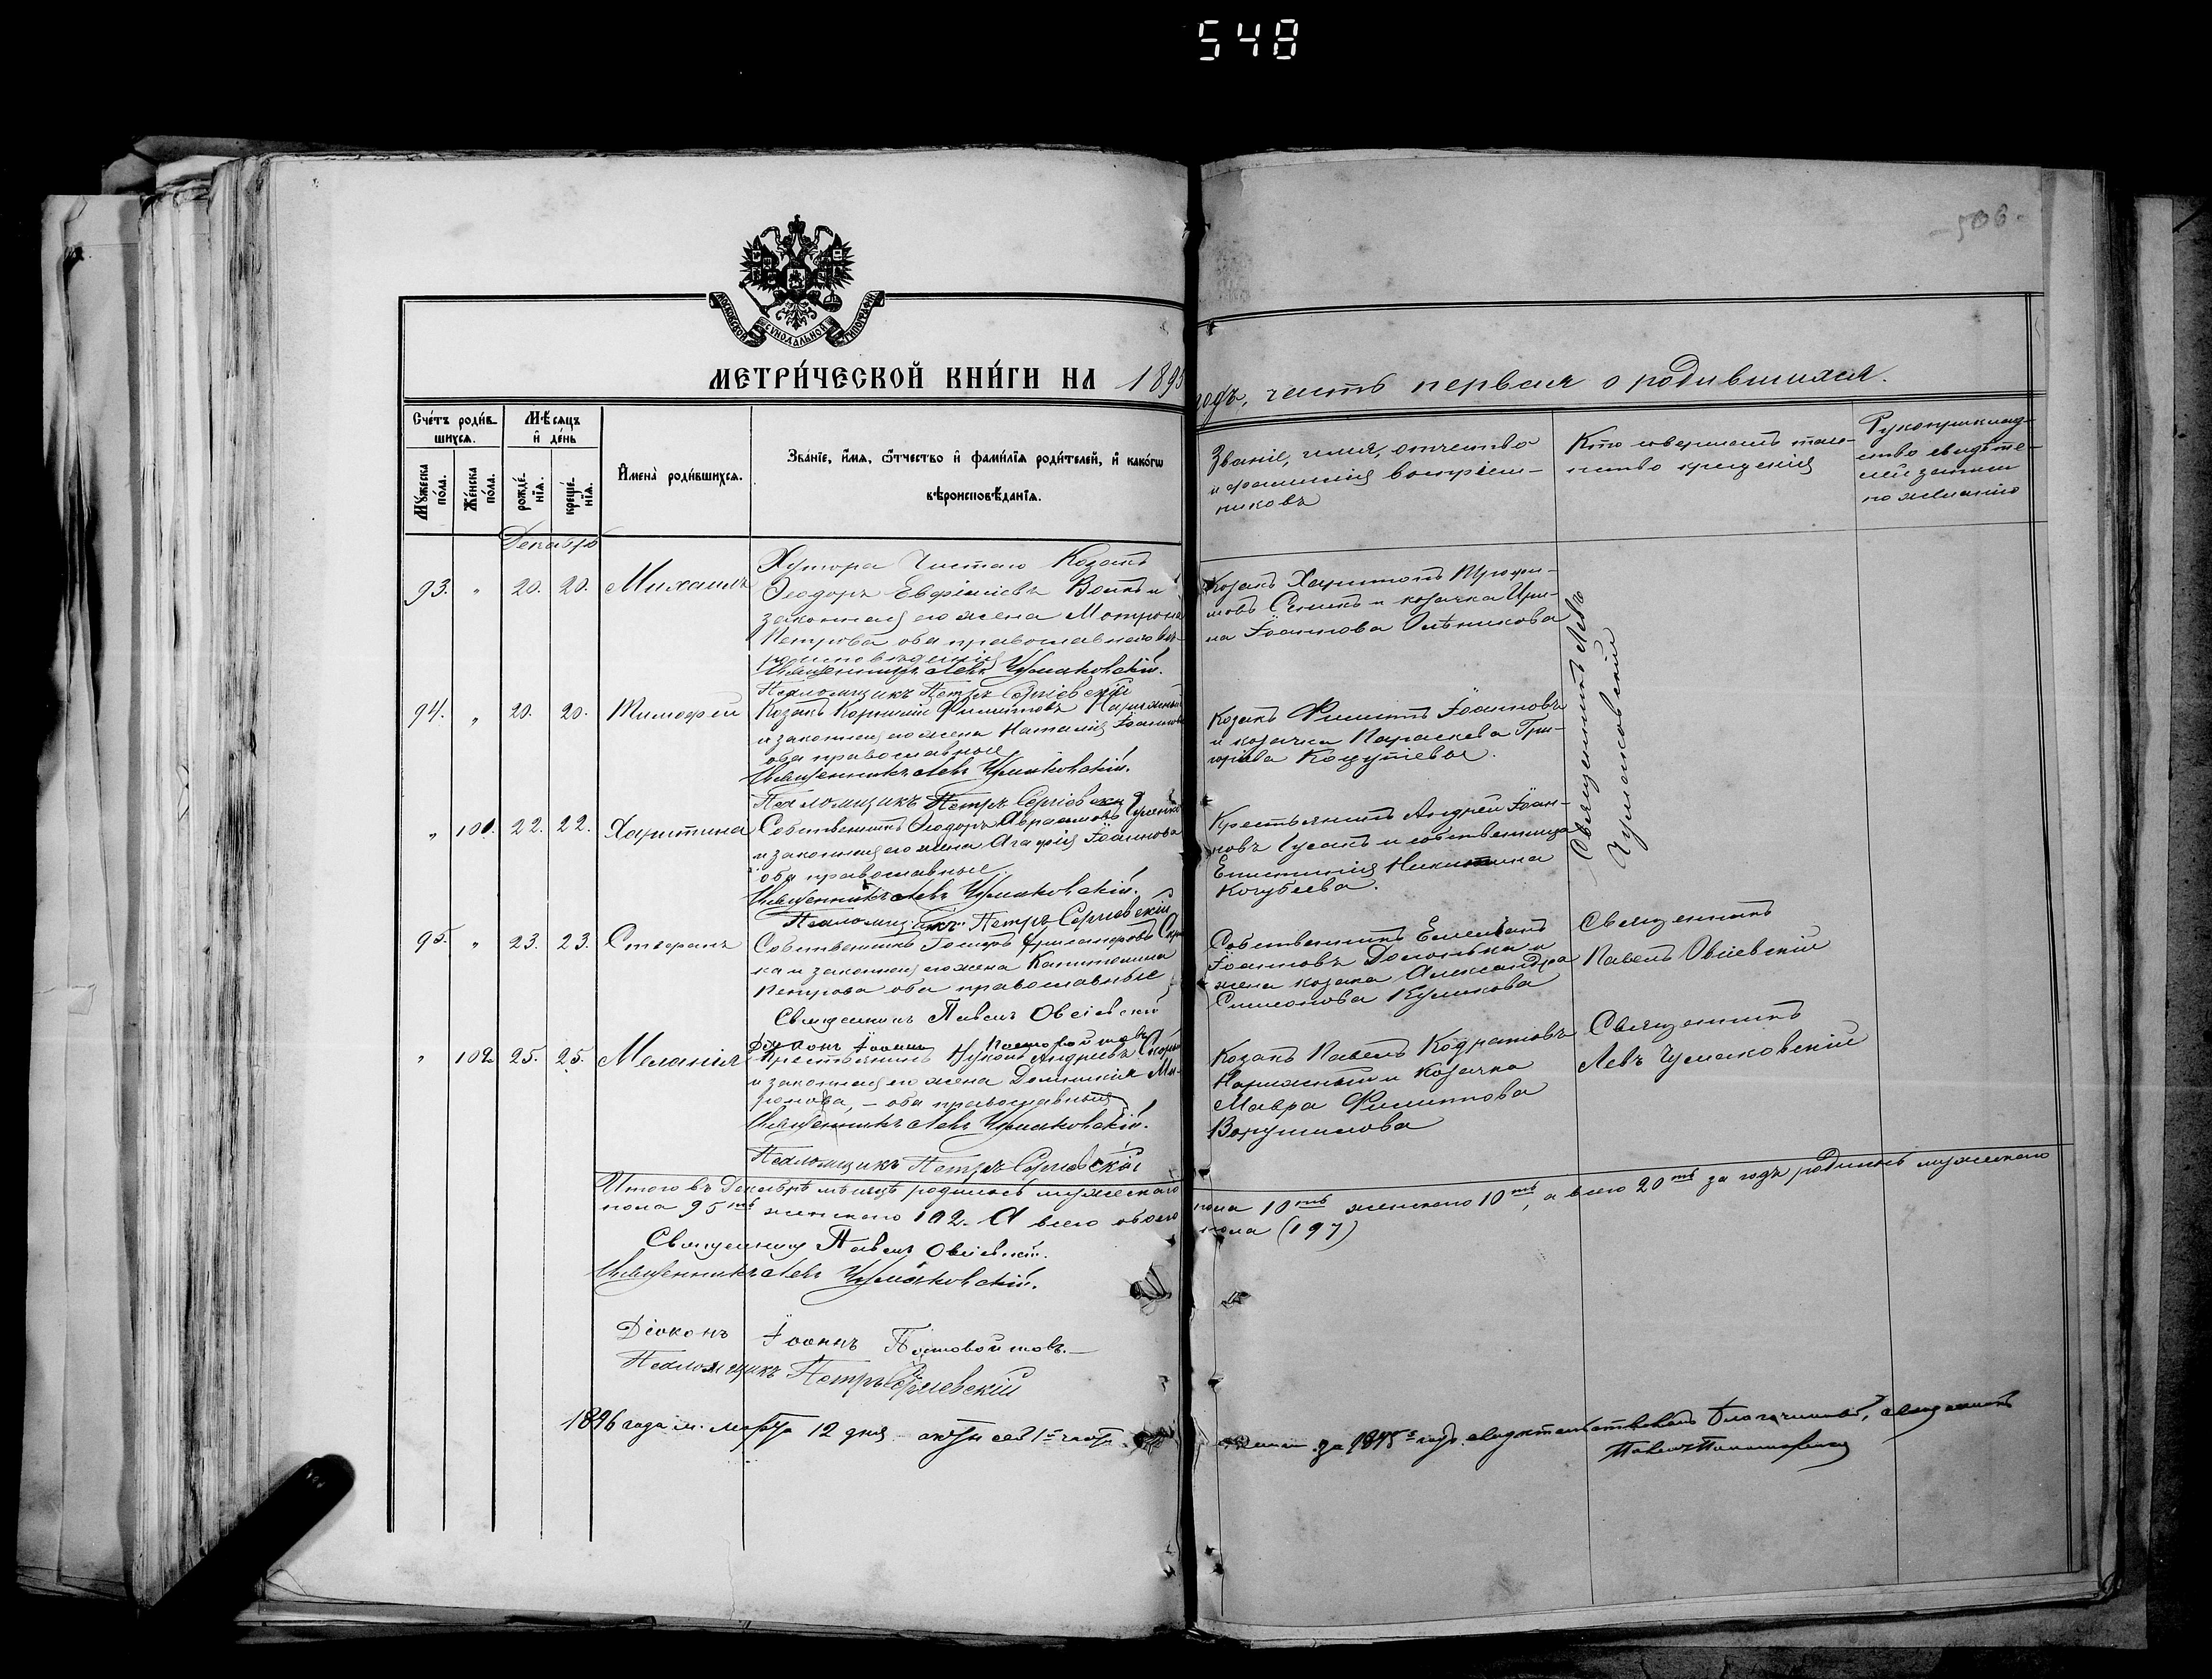 548
506.
МОСКОВСКОЙ СѴНОДАЛЬНОЙ ТИПОГРАФІИ
МЕТРИ́ЧЕСКОЙ КНИ́ГИ НА 1895
годъ, часть первая о родившихся.
Сче́тъ роди́вшихся.
Му́жеска по́ла.
Же́нска по́ла.
Мѣ́сяцъ и҆ де́нь
рожде́нїѧ.
креще́нїѧ.
И҆мена̀ роди́вшихсѧ.
Зва́нїе, и҆́мѧ, ѻ҆́тчество и҆ фами́лїѧ роди́телей, и҆ како́гѡ
вѣроисповѣ́данїѧ.
Званіе, имя, отчество
и фамилія воспріем-
никовъ
Кто совершалъ таин-
ство крещенія
Рукоприклад-
ство свидѣте-
лей записи
по желанію
Декабрь
93. " 20. 20. Михаилъ
Хутора Чистаго Козакъ
Ѳеодоръ Евфиміевъ Вовкъ и
законная его жена Мотрона
Петрова оба православнаго вѣ-
роисповѣданія
Священникъ Левъ Чумаковскій.
Псаломщикъ Петръ Сергіевскій
Козакъ Харитонъ Трофи-
мовъ Сеникъ и козачка Ири-
на Іоаннова Олѣникова
Священникъ Левъ
Чумаковскій
94. " 20. 20. Тимофей
Козакъ Корнилій Филиповъ Наріжный
и законная его жена Наталія Іоаннова
оба православные
Священникъ Левъ Чумаковскій.
Псаломщикъ Петръ Сергіевскій
Козакъ Филиппъ Іоанновъ
и козачка Параскева Гри-
горіева
" 101. 22. 22. Харитина
Собственникъ Ѳеодоръ Авраамовъ
и законная его жена Агафія Іоаннова
оба православные.
Священникъ Левъ Чумаковскій.
Псаломщикъ Петръ Сергіевскій
Крестьянинъ Андрей Іоан-
новъ Гусакъ и собственница
Епистимія Никитина
Кочубеева.
95. " 23. 23. Стефанъ
Собственникъ
ка и законная его жена Капитолина
Петрова оба православные
Священникъ Павелъ Овсіевскій
Діаконъ Іоаннъ Постовойтовъ
Собственникъ Емеліанъ
Іоанновъ и
жена козака Александра
Симеонова Куликова
Священникъ
Павелъ Овсіевскій
" 102 25. 25. Меланія
Крестьянинъ Андреевъ
и законная его жена Домникія Ми-
ронова, – оба православныя
Священникъ Левъ Чумаковскій.
Псаломщикъ Петръ Сергіевскій
Козакъ Павелъ Кодратовъ
Наріжный и Козачка
Мавра Филиппова
Ворушилова
Священникъ
Левъ Чумаковскій
Итого въ Декабрѣ мѣсяцѣ родилось мужескаго пола 10ть женскаго 10ть, а всего 20ть за годъ родилось мужескаго
пола 95ть женскаго 102. А всего обоего пола (197)
Священникъ Павелъ Овсіевскій.
Священникъ Левъ Чумаковскій.
Діаконъ Іоаннъ Постовойтовъ.
Псаломщикъ Петръ Сергіевскій
1896 года м. марта 12 дня за 1895 годъ свидѣтельствовалъ Благочинный, священникъ
Павелъ